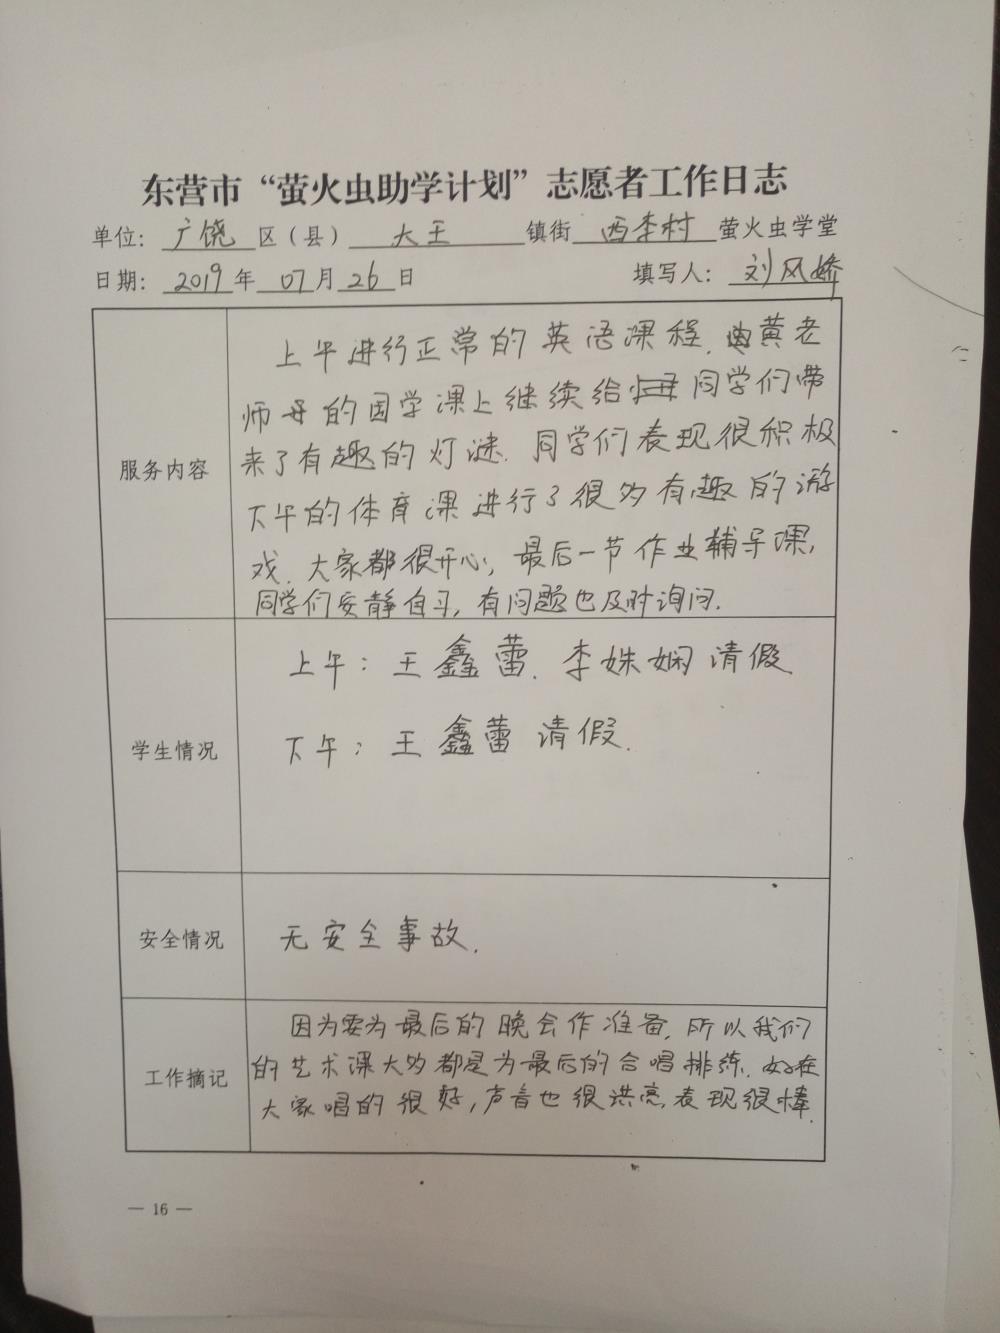 东营市“萤火虫助学计划”志愿者工作日志
单位：广饶区（县）大王镇街西李村萤火虫学堂
日期：2019年07月26日 填写人：刘风娇
服务内容
上午进行正常的英语课程，黄老
师的国学课上继续给同学们带
来了有趣的灯谜.同学们表现很积极
下午的体育课进行了很多有趣的游
戏.大家都很开心,最后一节作业辅导课,
同学们安静自习,有问题也及时询问.
学生情况
上午：王鑫蕾.李姝娴请假
下午：王鑫蕾请假.
安全情况
无安全事故.
工作摘记
因为要为最后的晚会作准备,所以我们
的艺术课大多都是为最后的合唱排练.好在
大家唱的很好,声音也很洪亮,表现很棒.
— 16 —